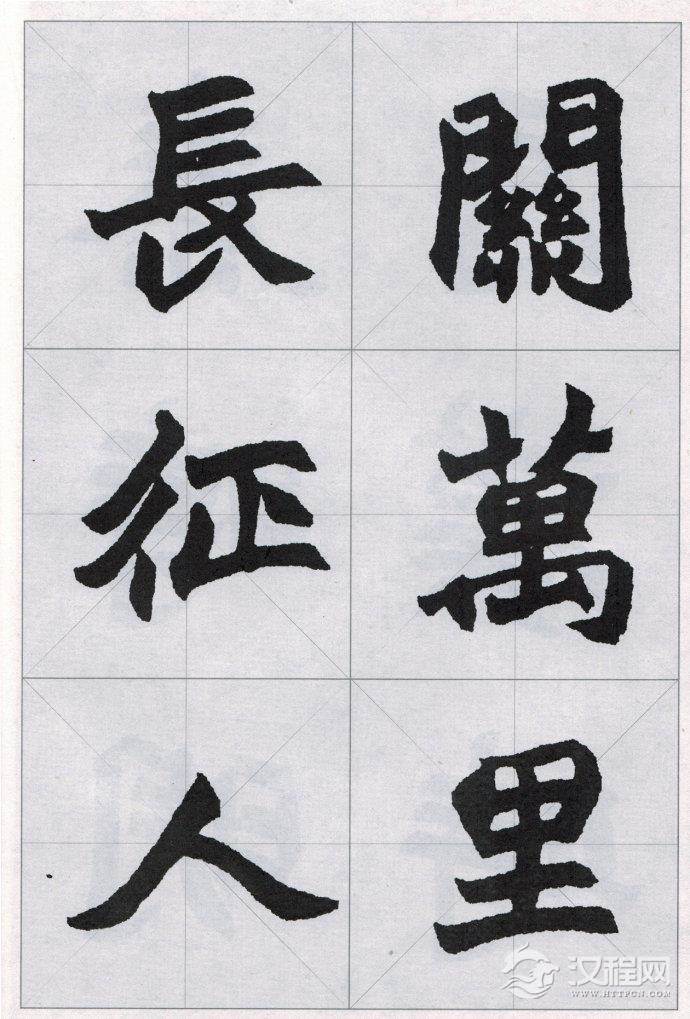 關萬里
長征人
汉程网
WWW.HTTPCN.COM